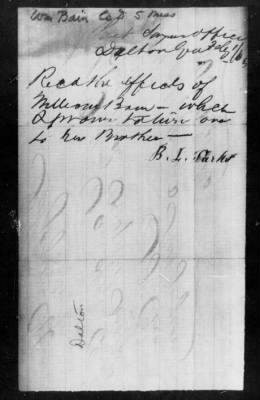 Wm Bain Capt 5 Miss
Office
Dalton Ga Feby
Recd the effects of
William Bain — which
I promise to turn over
to his Brother —
B. L. Parks
Dalton